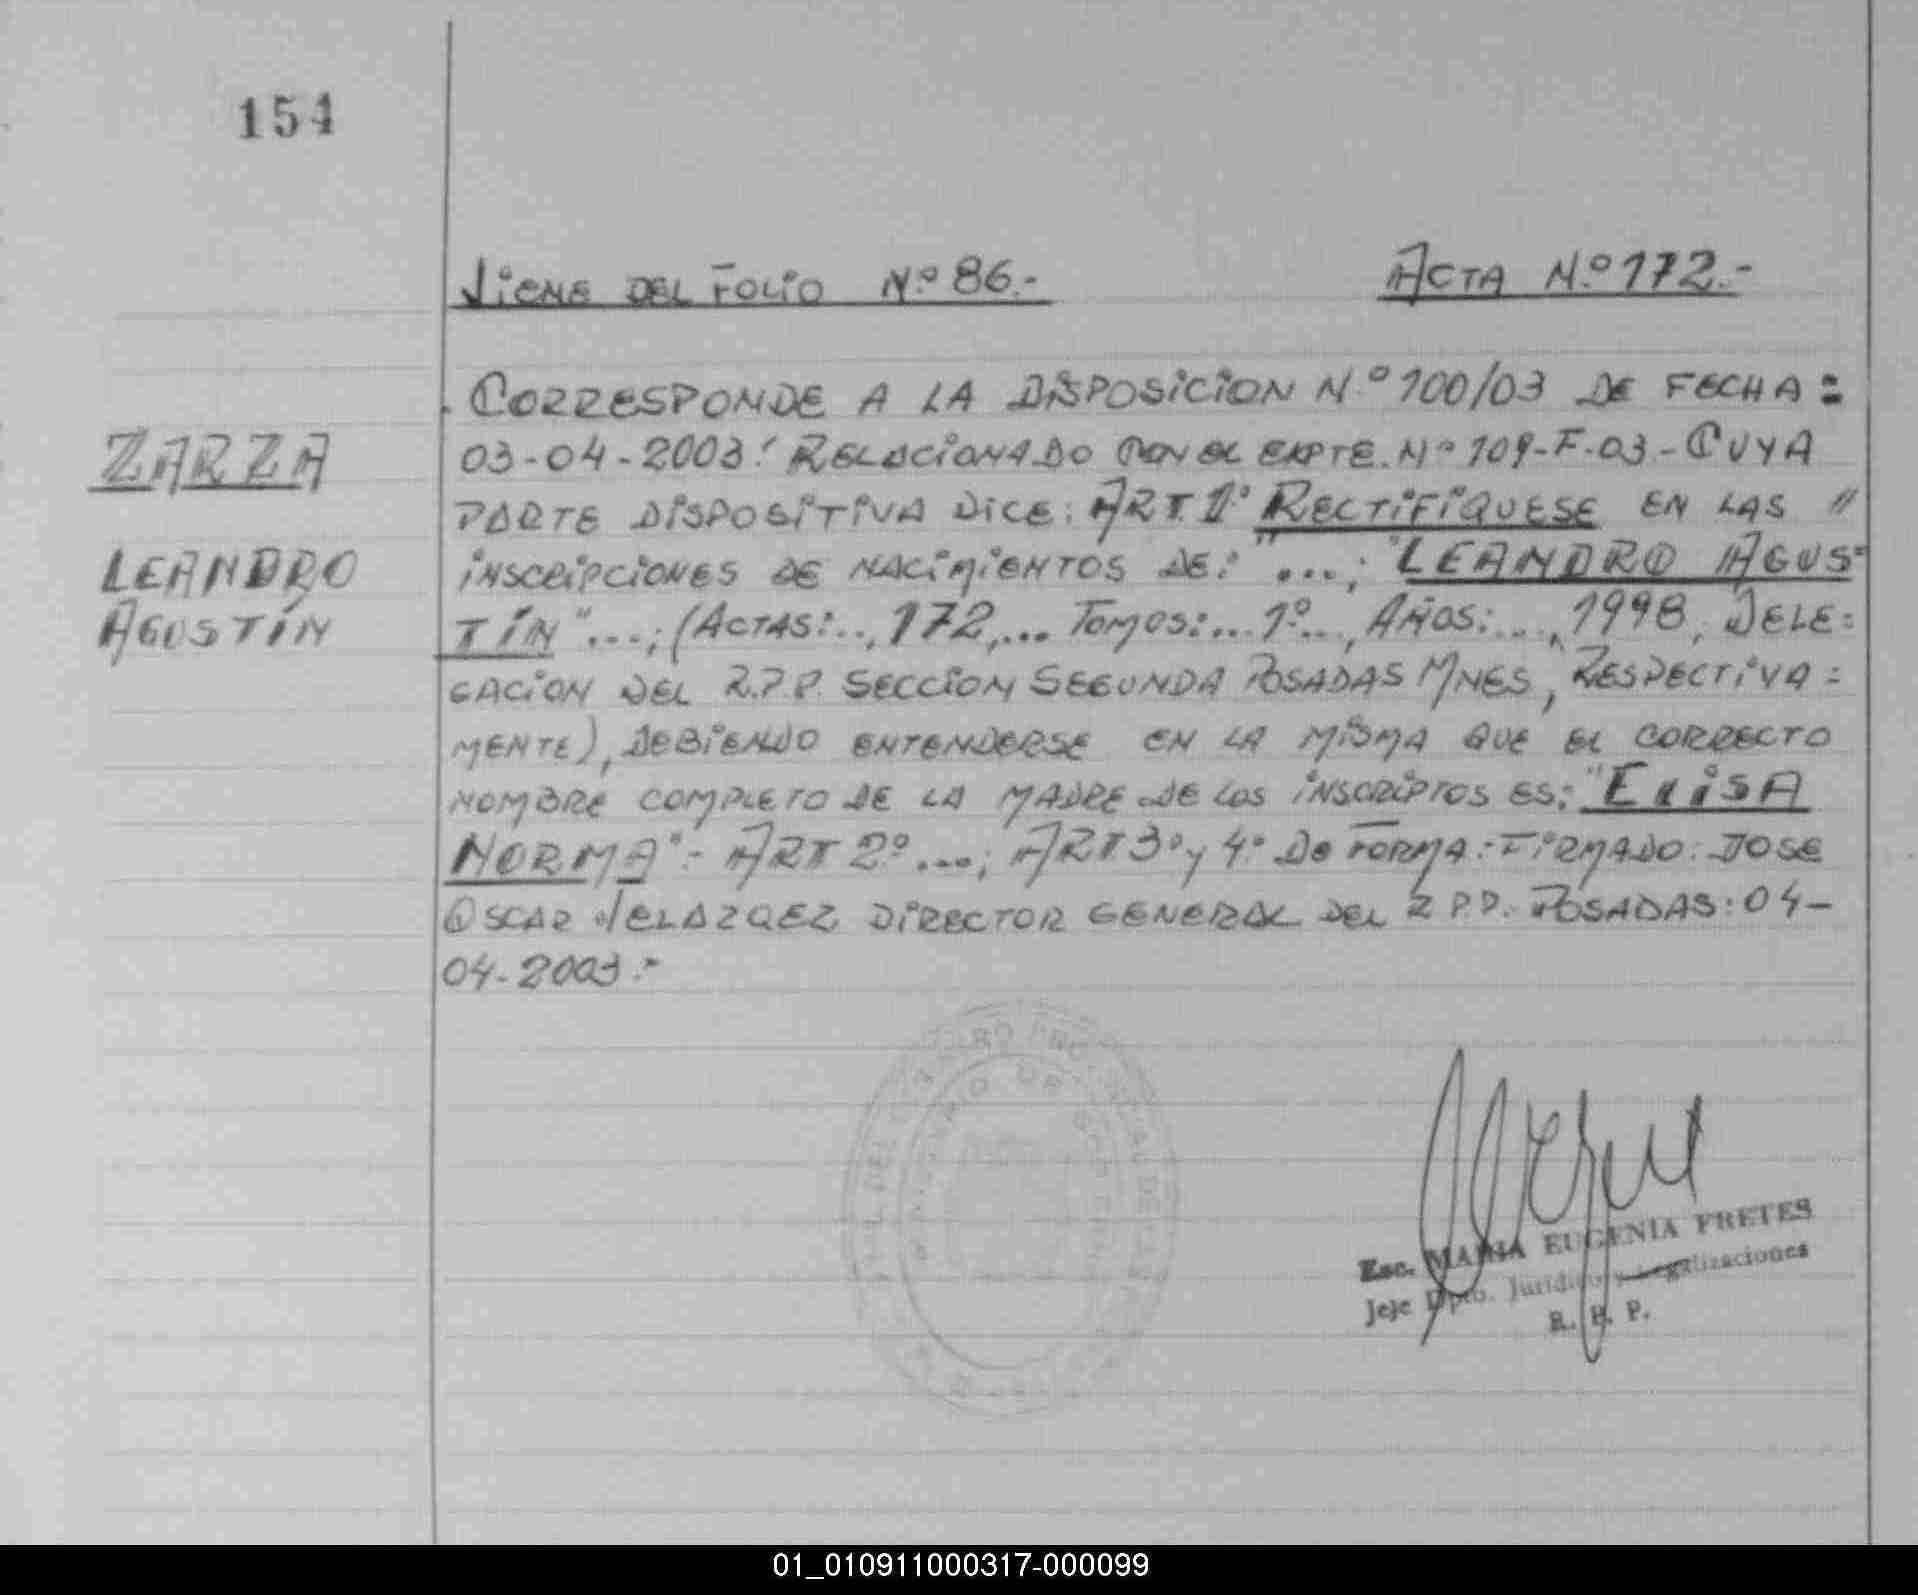 154
Viene DEL FOLIO Nº 86.- ACTA Nº 172.-
CORRESPONDE A LA DISPOSICION Nº 100/03 DE FECHA=
ZARZA
03-04-2003. RELACIONADO CON EL EXPTE. Nº 109-F-03- CUYA
PARTE DISPOSITIVA DICE: ART. 1º RECTIFIQUESE EN LAS "
LEANDRO
INSCRIPCIONES DE NACIMIENTOS DE: "...; "LEANDRO AGUS=
AGUSTÍN
TÍN"...; (ACTAS:.., 172,... TOMOS:... 1º..., AÑOS:..., 1998, DELE=
GACION DEL R.P.P. SECCION SEGUNDA POSADAS MNES, RESPECTIVA=
MENTE), DEBIENDO ENTENDERSE EN LA MISMA QUE EL CORRECTO
NOMBRE COMPLETO DE LA MADRE DE LOS INSCRIPTOS ES: "ELISA
NORMA".- ART 2º...; ART 3º y 4º DE FORMA.- FIRMADO: JOSE
OSCAR VELAZQEZ DIRECTOR GENERAL DEL R.P.P. POSADAS: 04-
04-2003.-
Esc. MARIA EUGENIA FRETES
Jefe Dpto. Jurídico y Legalizaciones
R. P. P.
01_010911000317-000099